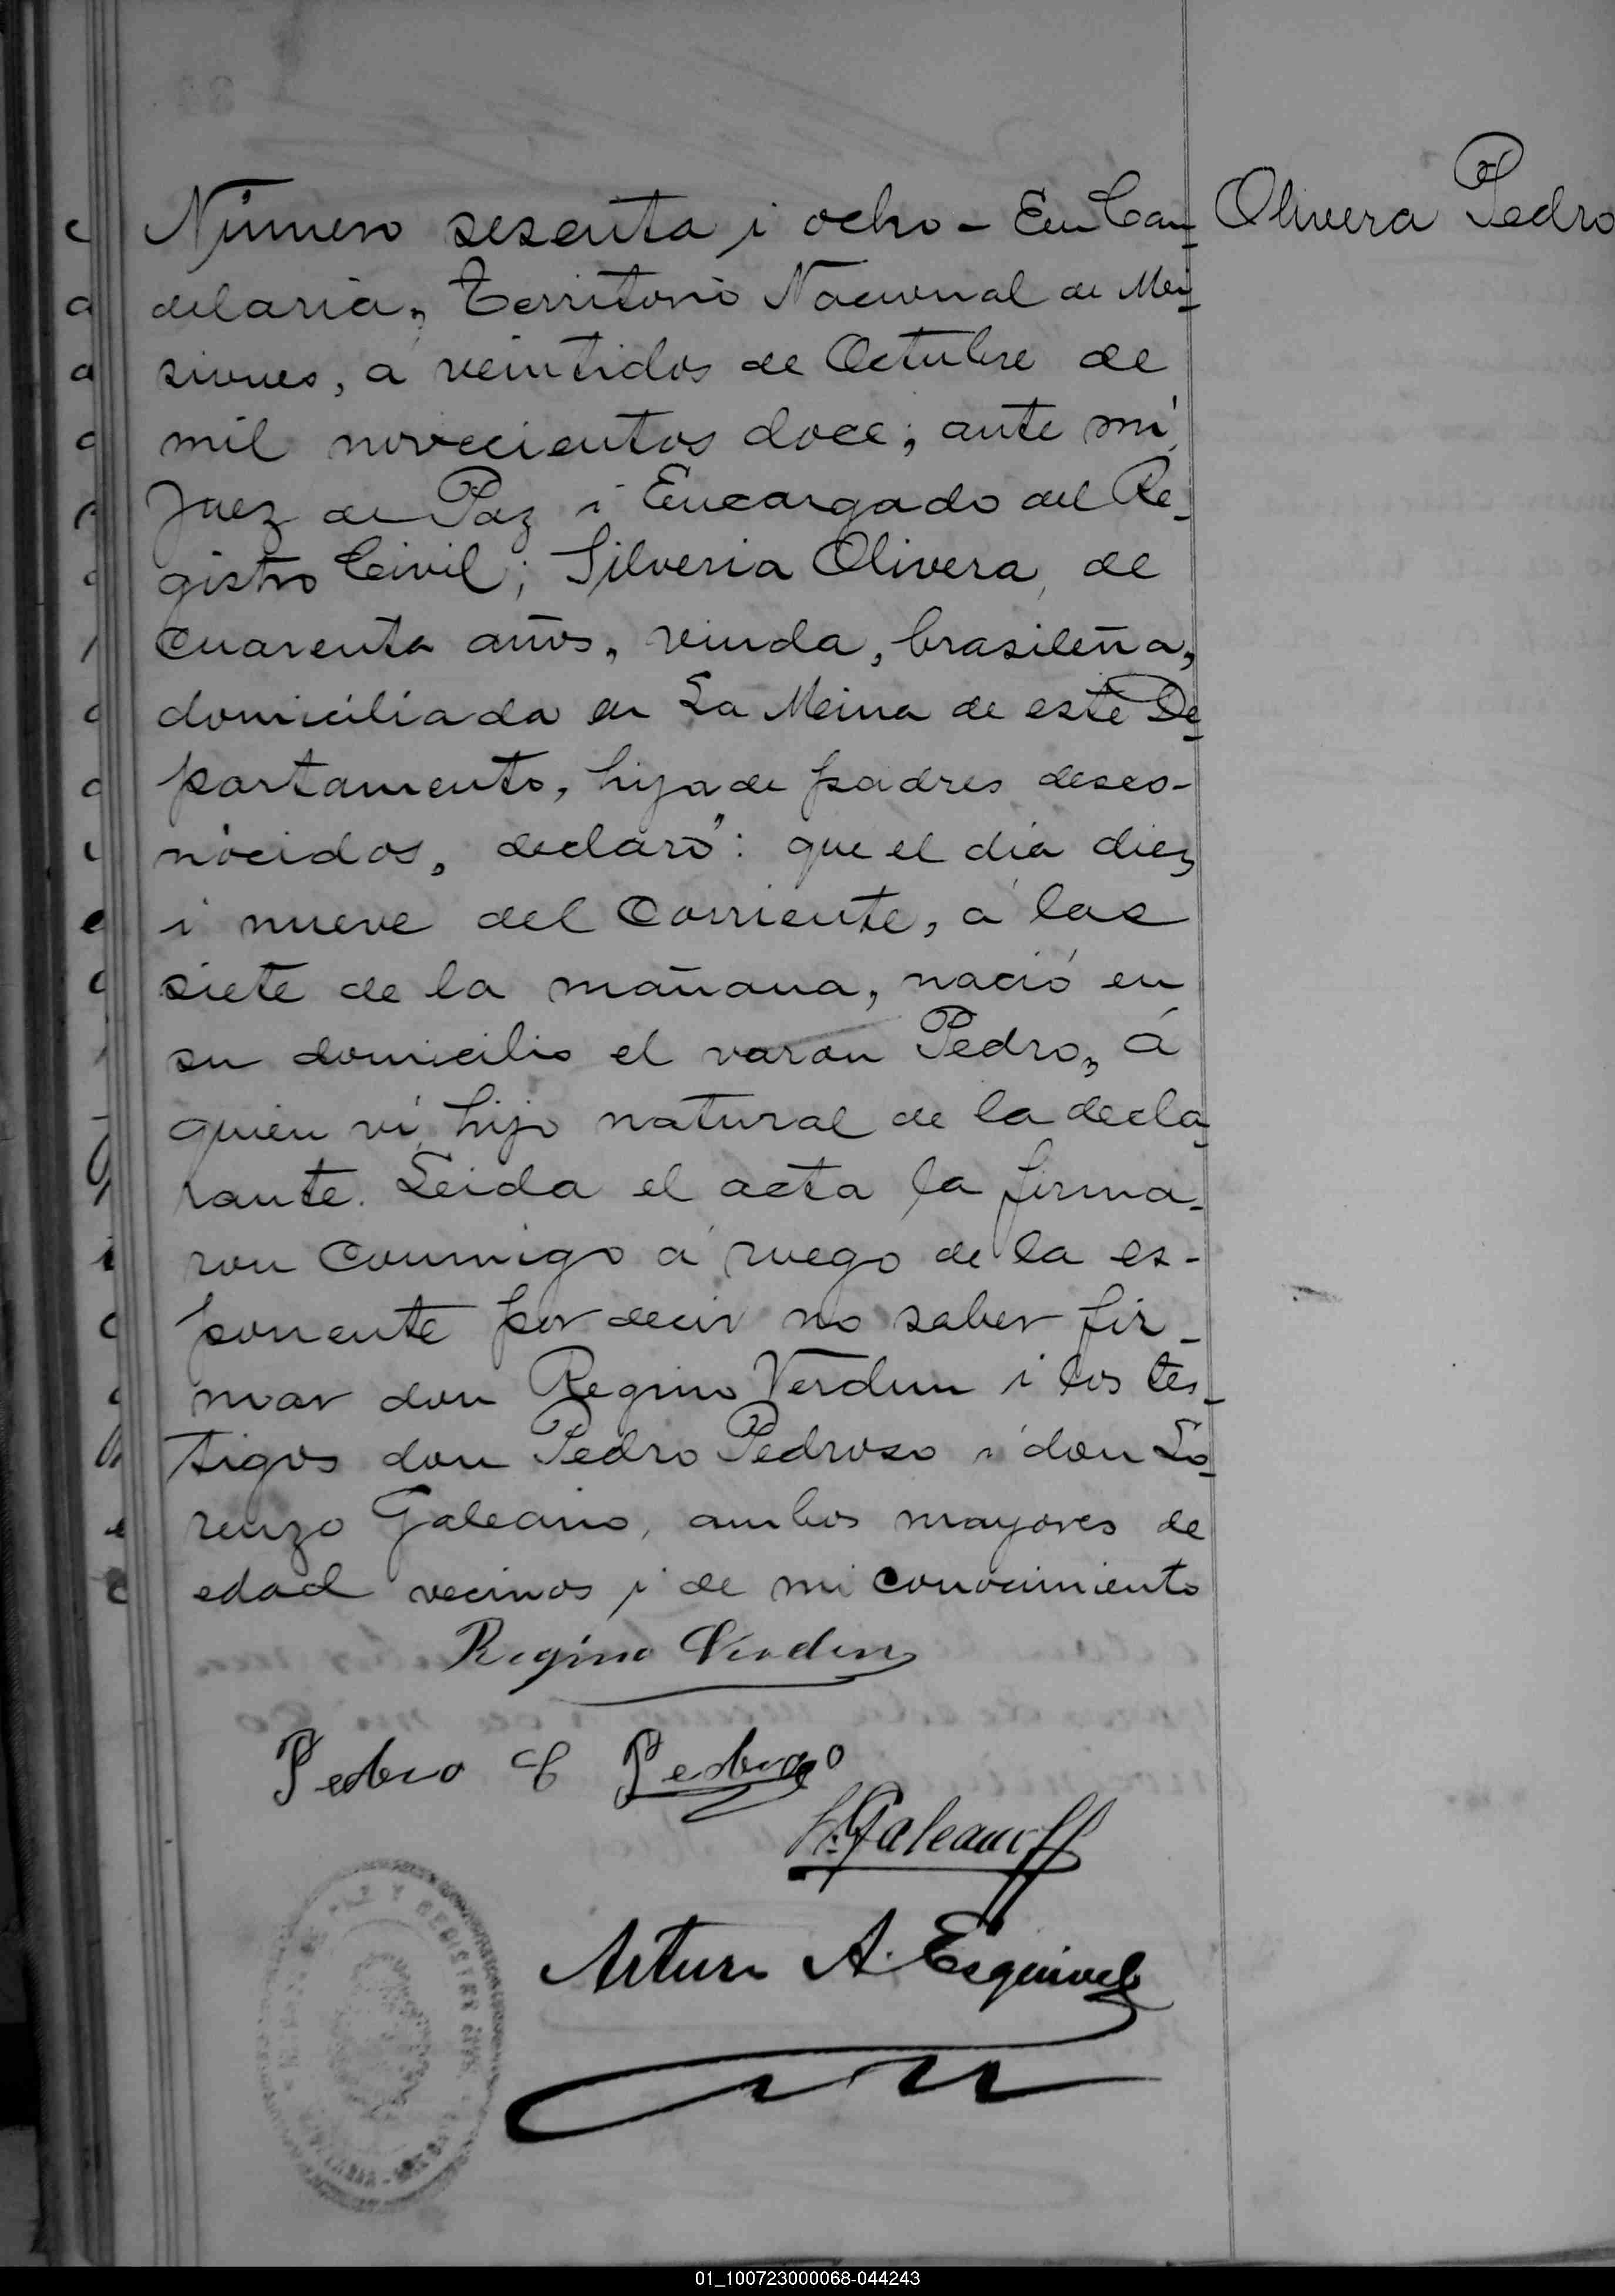 Número sesenta i ocho - En Can
Olivera Pedro
delaria, Territorio Nacional de Mi
siones, á veintidos de Octubre de
mil novecientos doce; ante mí,
Juez de Paz i Encargado del Re-
gistro Civil; Silveria Olivera, de
cuarenta años, viuda, brasileña,
domiciliada en La Mina de este De
partamento, hija de padres desco-
nocidos, declaró: que el día diez
i nueve del corriente, á las
siete de la mañana, nació en
su domicilio el varon Pedro, á
quien ví, hijo natural de la decla
rante. Leida el acta la firma-
ron conmigo á ruego de la es-
ponente por decir no saber fir-
mar don Regino Verdun i los tes-
tigos don Pedro Pedroso i don Lo
renzo Galeano, ambos mayores de
edad vecinos i de mi conocimiento
Regino Verdun
Pedro Pedroso
L. Galeano
Arturo A. Esquivel
01_100723000068-044243